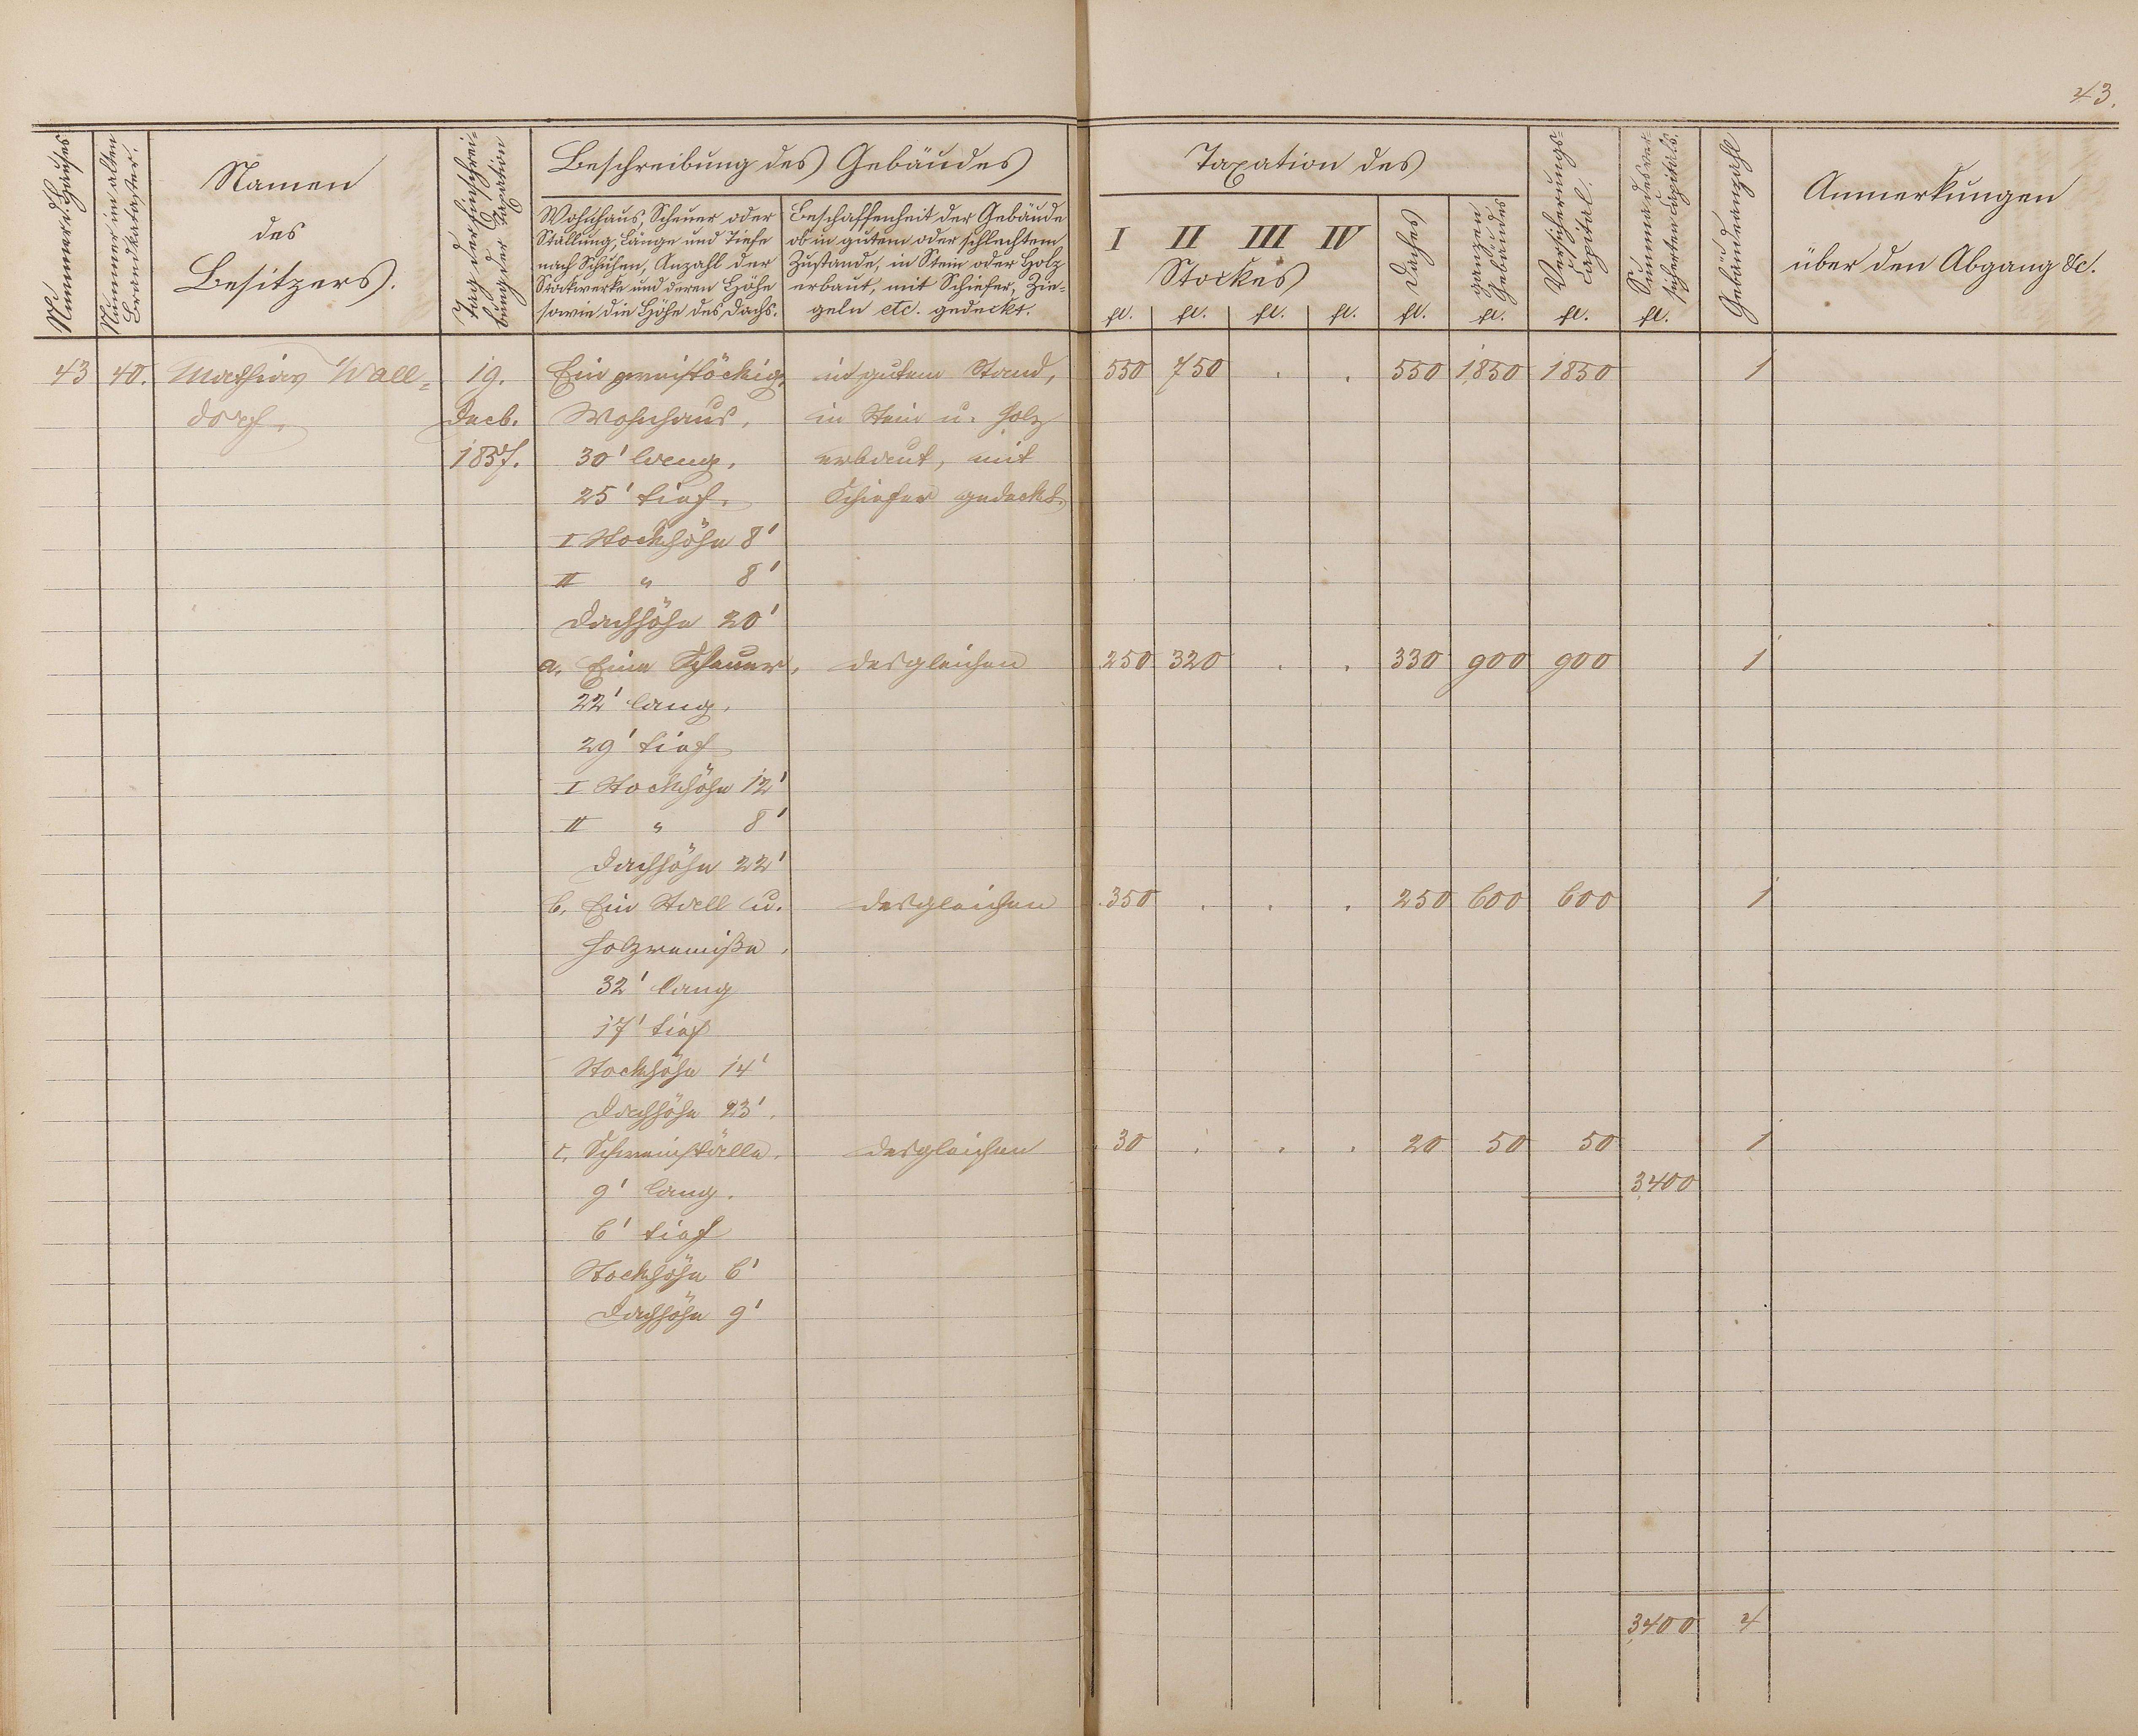 43.
Nummer d. Hauses
Nummer im alten
Brandkataster.
Namen
des
Besitzers.
Tag der Einschrei-
bung der Taxation
Beschreibung des Gebäudes
Wohnhaus, Scheuer oder
Stallung, Länge und Tiefe
nach Schuhen, Anzahl der
Stockwerke und deren Höhe
sowie die Höhe des Dachs.
Beschaffenheit der Gebäude
ob in gutem oder schlechtem
Zustande, in Stein oder Holz
erbaut, mit Schiefer, Zie-
geln etc. gedeckt.
Taxation des
I II III IV
Stockes
Daches
ganzen
Gebäudes
Versicherungs-
Capital.
Summa des ver-
sicherten Capitals.
Gebäudeanzahl
Anmerkungen
über den Abgang &c.
fl. fl. fl. fl. fl. fl. fl. fl.
43 40. Mathias Wall- 19. Ein zweistöckig. in gutem Stand, 550 750 . . 550 1,850 1850 1
dorf. Decb. Wohnhaus, in Stein u. Holz
1857. 30' lang, erbaut, mit
25' tief, Schiefer gedeckt.
I Stockhöhe 8'
II " 8'
Dachhöhe 20'
a. Eine Scheuer, desgleichen 250 320 . . 330 900 900 1
22' lang,
29' tief
I Stockhöhe 12'
II " 8'
Dachhöhe 22'
b. Ein Stall u. desgleichen 350 . . . 250 600 600 1
Holzremiße,
32' lang
17' tief
Stockhöhe 14'
Dachhöhe 23'.
c. Schweinställe, desgleichen 30 . . . 20 50 50 1
9' lang. 3,400
6' tief
Stockhöhe 6'
Dachhöhe 9'
3,400 4